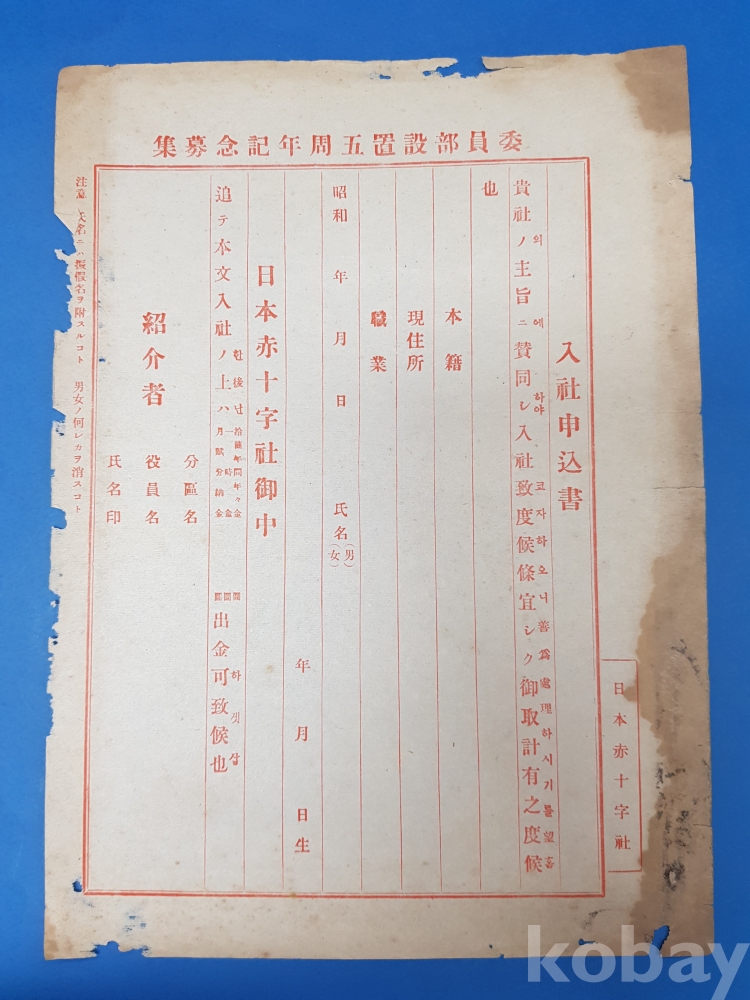 委員部設置五周年記念募集
日本赤十字社
入社申込書
의에하야코자하오니善爲處理하시기를望홈
貴社ノ主旨ニ賛同シ入社致度候條宜シク御取計有之度候
也
本籍
現住所
職業
昭和 年 月 日 氏名(男女)
年 月 日生
日本赤十字社御中
한後난 하겟삽
追テ本文入社ノ上ハ 年間年々金 圓 一時金 圓 月賦分納金 圓 出金可致候也
紹介者
分區名
役員名
氏名印
注意 氏名ニハ振假名ヲ附スルコト 男女ノ何レカヲ消スコト
kobay